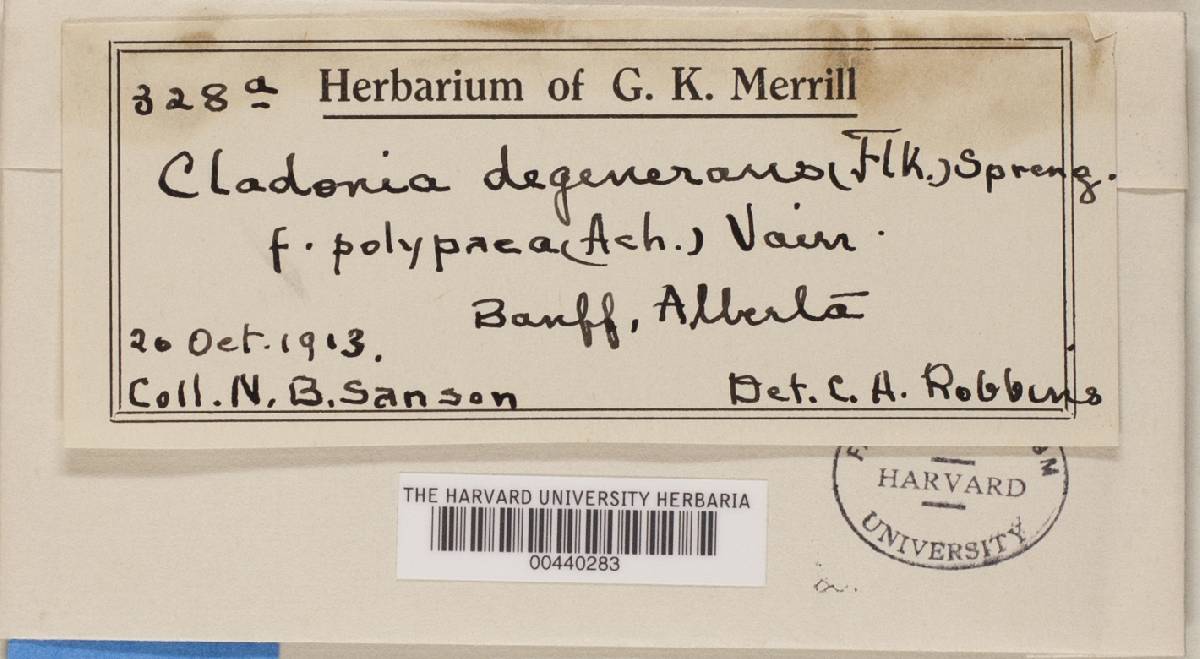 328a Herbarium of G. K. Merrill
Cladonia degenerans (Flk.) Spreng.
f. polypaea (Ach.) Vain.
Banff, Alberta
20 Oct. 1913.
Coll. N. B. Sanson Det. C. A. Robbins
HARVARD
UNIVERSITY
THE HARVARD UNIVERSITY HERBARIA
00440283
a.